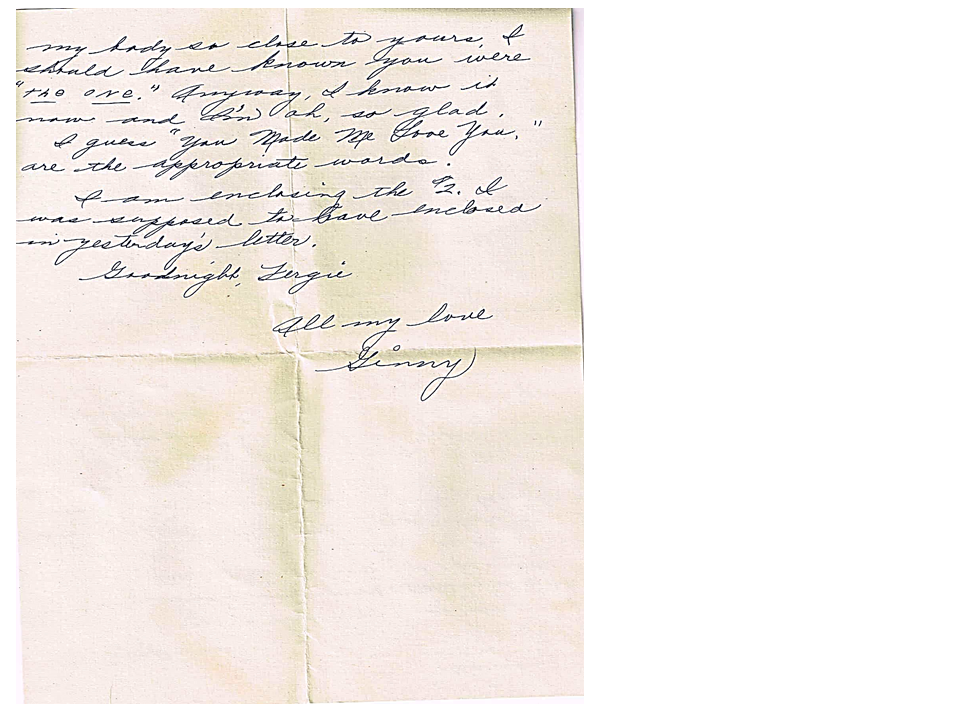 my body so close to yours, I
should have known you were
"the one." Anyway, I know it
now and I'm oh, so glad.
I guess "You Made Me Love You,"
are the appropriate words.
I am enclosing the $2. I
was supposed to have enclosed
in yesterday's letter.
Goodnight, Fergie
All my love
Ginny